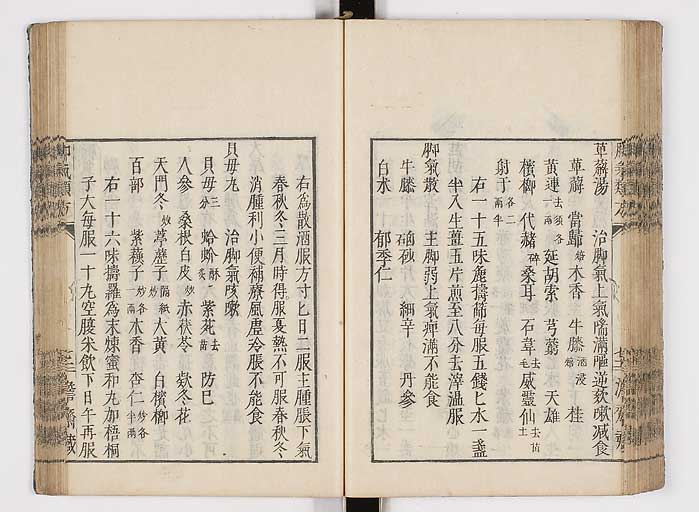 萆薢湯 治脚氣上氣喘滿嘔逆欬嗽減食
萆薢 當歸焙 木香 牛膝酒浸焙 桂
黃連去須各一兩 延胡索 芎藭 天雄
檳榔 代赭碎 桑耳 石韋去毛 威靈仙去苗土
射干各二兩半
右一十五味麄擣篩每服五錢匕水一盞
半入生薑五片煎至八分去滓温服
脚氣散 主脚弱上氣痺滿不能食
牛膝 硇砂 細辛 丹參
白朮 郁李仁
右爲散酒服方寸匕日二服主腫脹下氣
春秋冬三月時得服夏熱不可服春秋冬
消腫利小便補療風虛冷脹不能食
貝母丸 治脚氣咳嗽
貝母三分 蛤蚧酥炙 紫苑去苗 防已
人參 桑根白皮炒 赤茯苓 欵冬花
天門冬炒 葶藶子隔紙炒 大黃 白檳榔
百部 紫蘇子一兩炒 木香 杏仁炒各半兩
右一十六味擣羅爲末煉蜜和丸如梧桐
子大每服一十九空腹米飲下日午再服